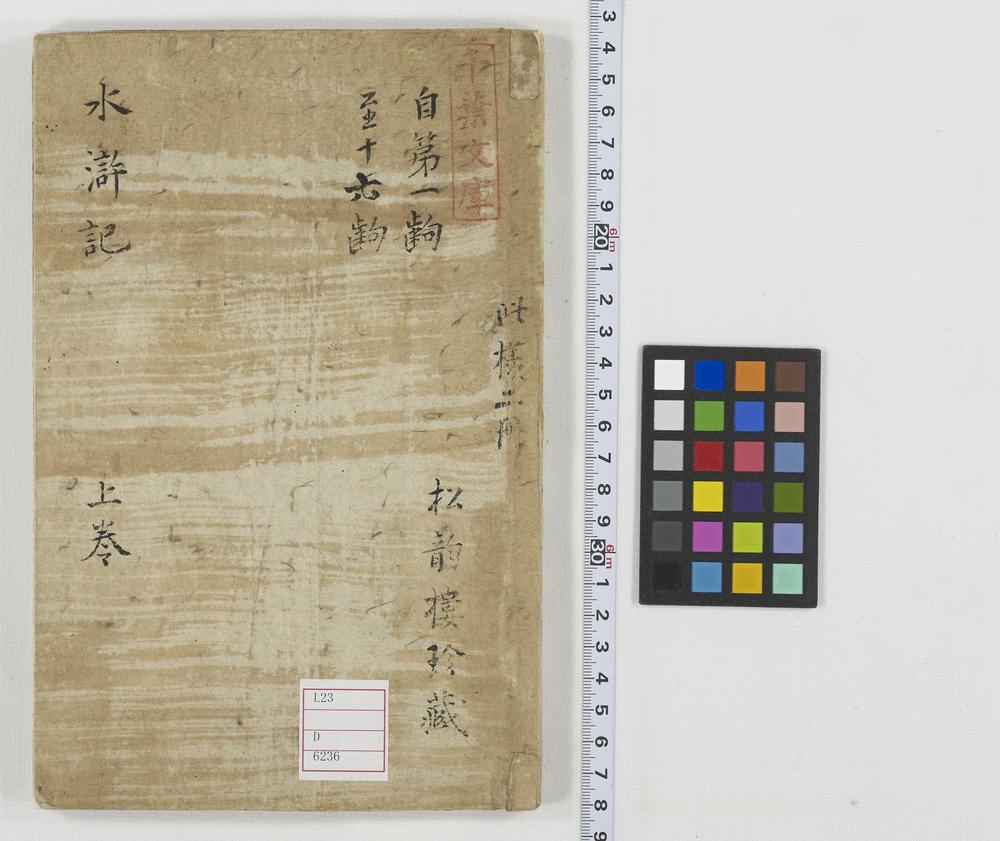 千葉文庫
自第一齣
至十六齣
松韵樓珍藏
水滸記
上卷
L23
D
6236
3 4 5 6 7 8 9 20 1 2 3 4 5 6 7 8 9 30 1 2 3 4 5 6 7 8 9
6m
6m